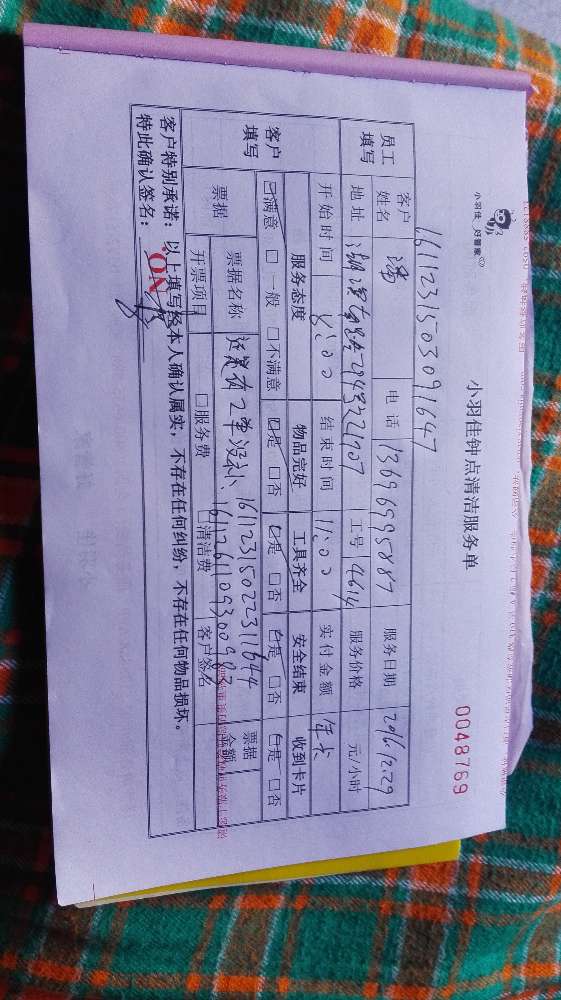 小羽佳 好管家
小羽佳钟点清洁服务单
0048769
1611231503091647
员工填写 客户姓名 潘 电话 13696995887 服务日期 2016.12.29
地址 工号 4614 服务价格 元/小时
客户填写 开始时间 8:00 结束时间 11:00 实付金额 年卡
服务态度 物品完好 工具齐全 安全结束 收到卡片
☑满意 □一般 □不满意 ☑是 □否 ☑是 □否 ☑是 □否 ☑是 □否
票据 票据名称 1611231502231644 票据金额
开票项目 □服务费 □清洁费 1611261109300983 客户签名
客户特别承诺：以上填写经本人确认属实，不存在任何纠纷，不存在任何物品损坏。
特此确认签名：
NO.